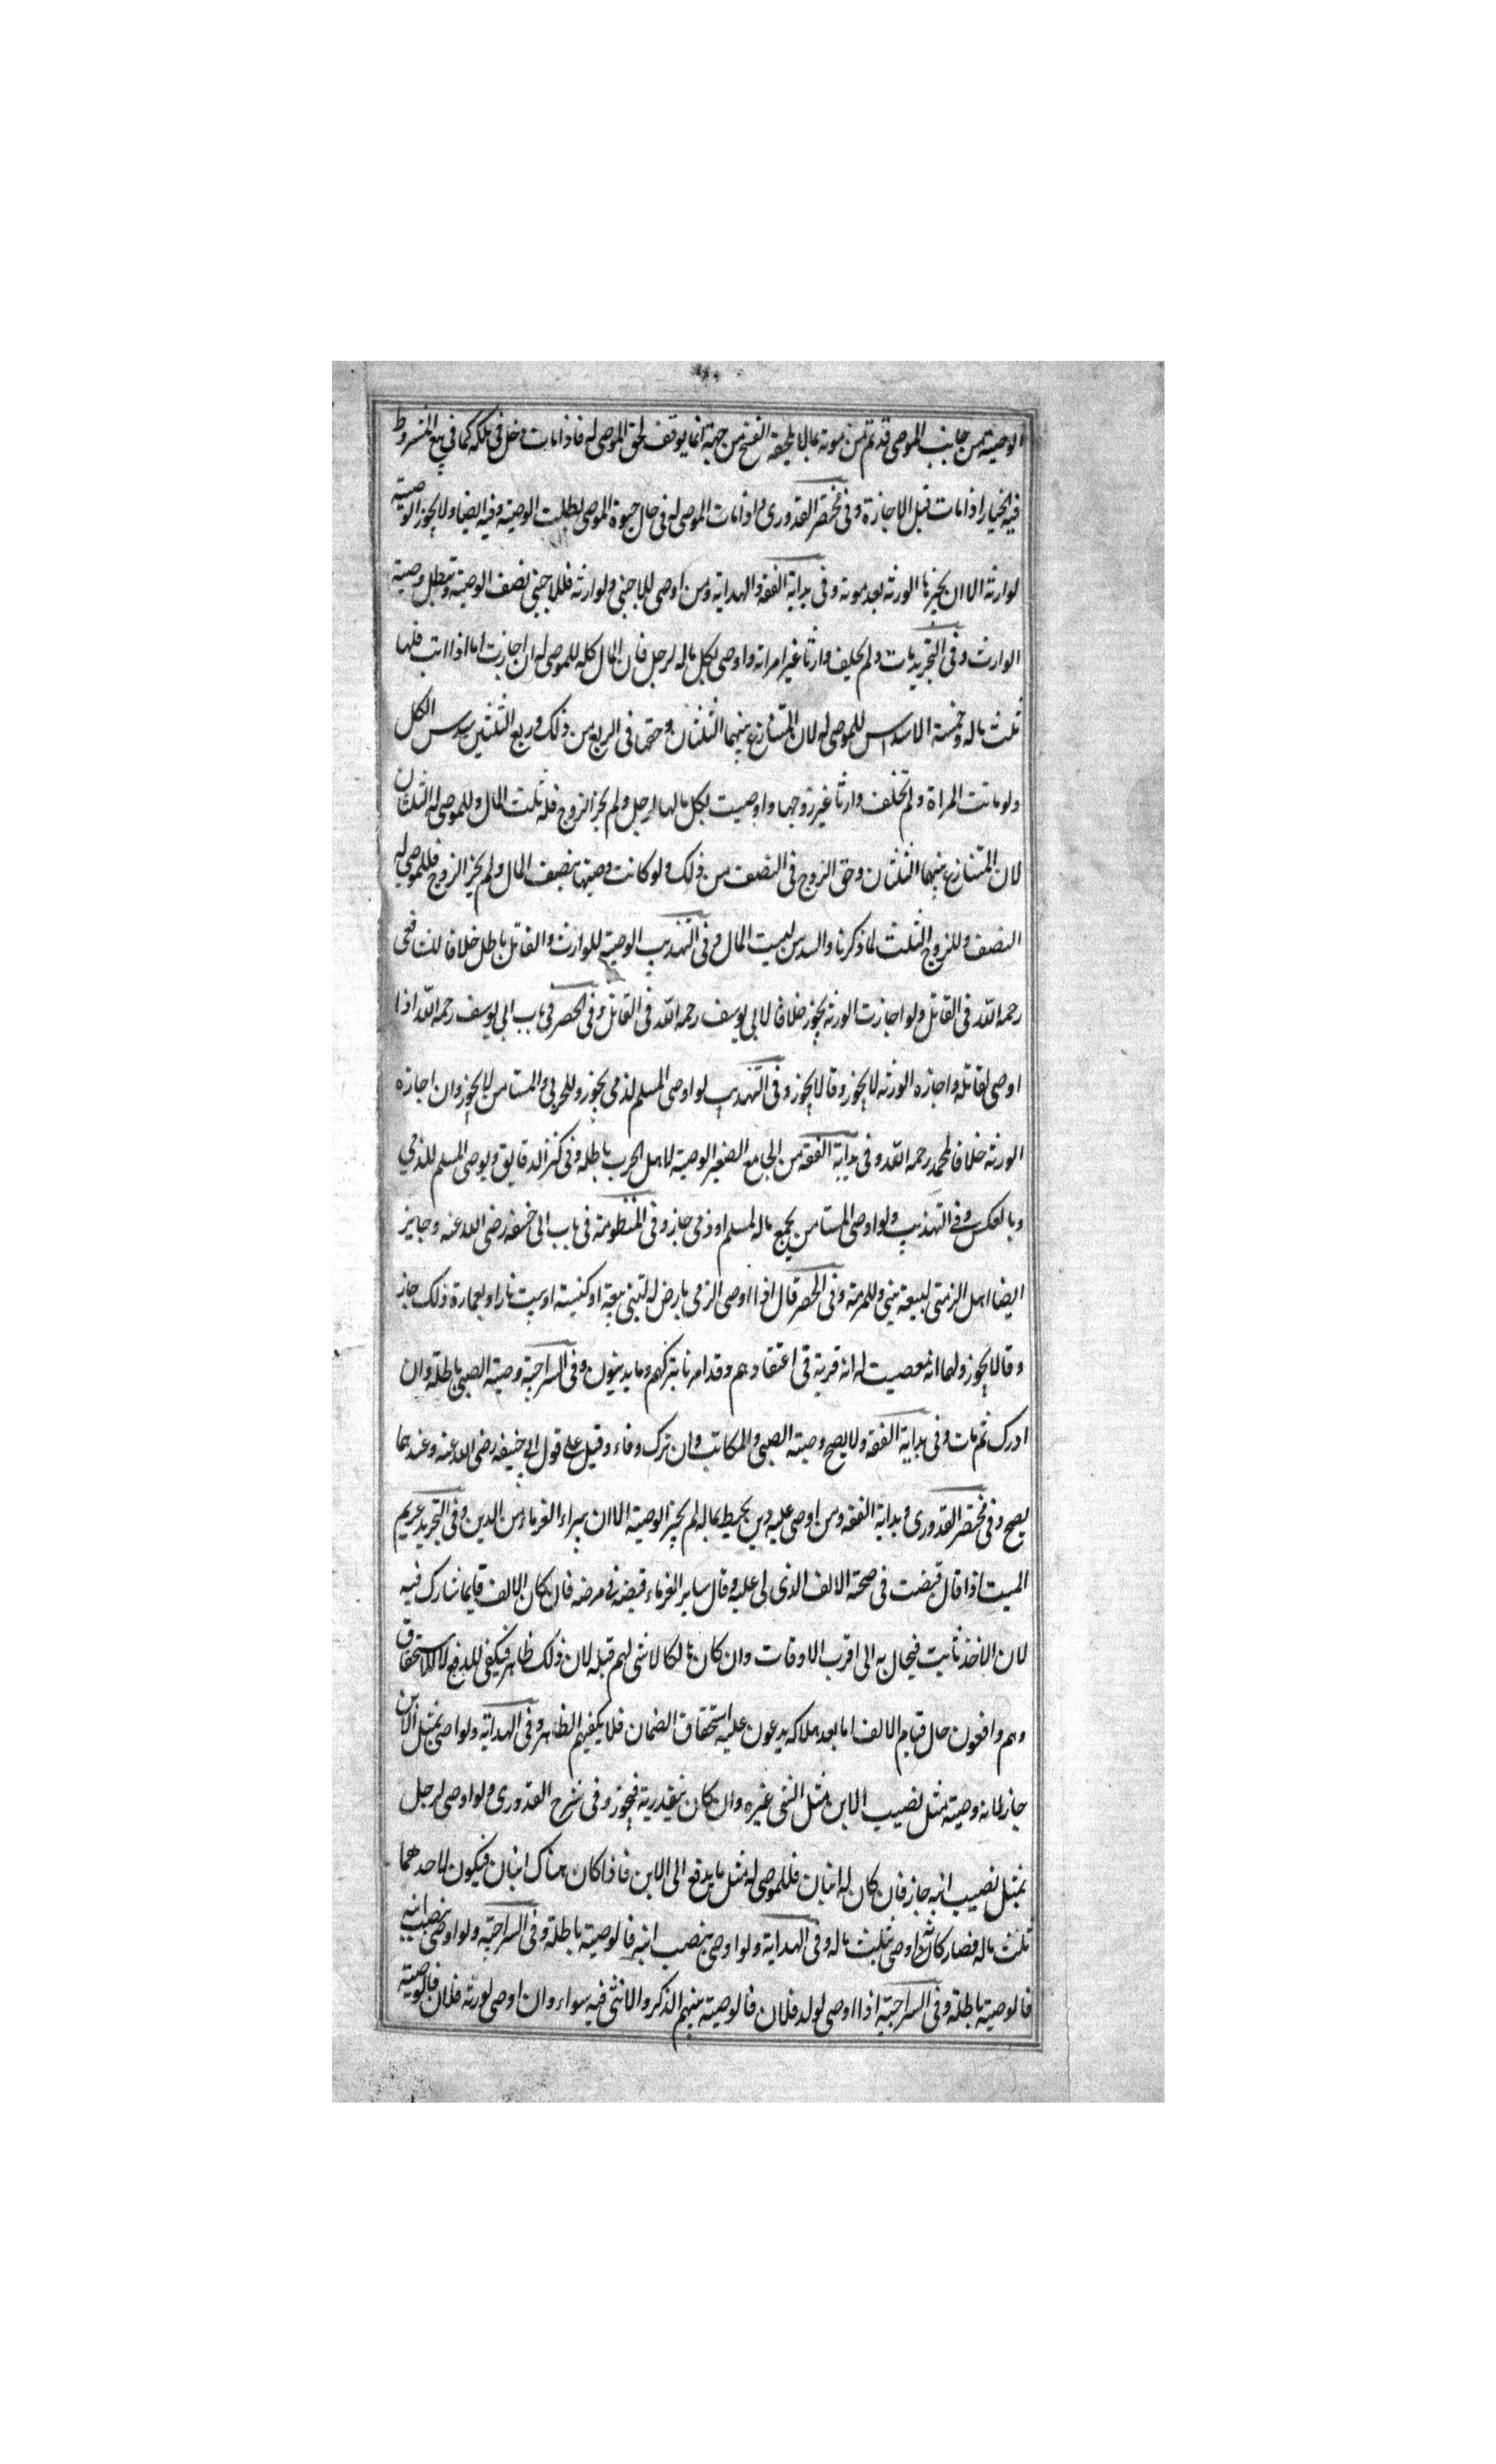 الوصية من جانب الموصى قد تم من موته تماما لا يلحقه الفسخ من جهة انما يوقف لحق الموصى له فاذا مات دخل فى ملكه كما فى بيع المشروط
فيه الخيار اذا مات قبل الاجازة وفى مختصر القدورى واذا مات الموصى له فى حال حيوة الموصى بطلت الوصية وفيه ايضا ولا يجوز الوصية
لوارثه الا ان يجيزها الورثة بعد موته وفى بداية الفقه والهداية ومن اوصى للاجنبى ولوارثه فللاجنبى نصف الوصية وتبطل وصية
الوارث وفى التجريد مات ولم يخلف وارثا غير امراته واوصى بكل ماله لرجل فان المال كله للموصى له ان اجازت اما اذا ابت فلها
ثلث ماله وخمسة الاسداس للموصى له لان المتنازع بينهما الثلثان وحقها فى الربع من ذلك وربع الثلثين سدس الكل
ولو ماتت المراة ولم تخلف وارثا غير زوجها واوصيت بكل مالها لرجل ولم يجز الزوج فله ثلث المال وللموصى له الثلثان
لان المتنازع بينهما الثلثان وحق الزوج فى النصف من ذلك ولو كانت وصيتها بنصف المال ولم يجز الزوج فللموصى له
النصف وللزوج الثلث لما ذكرنا والسدس لبيت المال وفى التهذيب الوصية للوارث والقاتل باطل خلافا للشافعى
رحمه الله فى القاتل ولو اجازت الورثة يجوز خلافا لابى يوسف رحمه الله فى القاتل وفى الحصر فى باب ابى يوسف رحمه الله اذا
اوصى لقاتله واجازه الورثة لا يجوز وقالا يجوز وفى التهذيب لو اوصى المسلم لذمى يجوز وللحربى والمستامن لا يجوز وان اجازه
الورثة خلافا لمحمد رحمه الله وفى بداية الفقه من الجامع الصغير الوصية لاهل الحرب باطلة وفى كنز الدقايق ويوصى المسلم للذمي
وبالعكس وفى التهذيب ولو اوصى المستامن بجميع ماله لمسلم او ذمى جاز وفى المنظومة فى باب ابى حنيفه رضى الله عنه وجايز
ايضا اهل الزمتى لبيعة تبنى وللمرمة وفى الحصر قال اذا اوصى الزمى بارض له لتبنى بيعة او كنيسة او بيت نار او بعمارة ذلك جاز
وقالا لا يجوز ولهما انه معصيت له انه قربة فى اعتقادهم وقد امرنا بتركهم وما يدينون وفى السراجية وصية الصبى باطلة وان
ادرك ثم مات وفى بداية الفقه ولا يصح وصية الصبى والمكاتب وان ترك وفاء وقيل على قول ابى حنيفه رضى الله عنه وعندهما
يصح وفى مختصر القدورى وبداية الفقه ومن اوصى عليه دين يحيط بماله لم يجز الوصية الا ان يبراء الغرماء من الدين وفى التجريد غريم
الميت اذا قال قبضت فى صحته الالف الذى لى عليه وقال ساير الغرماء قبضه فى مرضه فان كان الالف قايما شارك فيه
لان الاخذ ثابت فيحال به الى اقرب الاوقات وان كان هالكا لا شى لهم قبله لان ذلك ظاهر فيكفى للدفع لا للاستحقاق
وهم دافعون حال قيام الالف اما بعد هلاكه يدعون عليه استحقاق الضمان فلا يكفيهم الظاهر وفى الهداية ولو اوصى بمثل الابن
جاز لانه وصية بمثل نصيب الابن مثل الشى غيره وان كان يتقدر به فيجوز وفى شرح القدورى ولو اوصى لرجل
بمثل نصيب ابنه جاز فان كان له ابنان فللموصى له مثل ما يدفع الى الابن فاذا كان هناك ابنان فيكون لاحدهما
ثلث ماله فصار كانه اوصى بثلث ماله وفى الهداية ولو اوصى بنصيب ابنه فالوصية باطلة وفى السراجية ولو اوصى بنصيب ابنه
فالوصية باطلة وفى السراجية اذا اوصى لولد فلان فالوصية بينهم الذكر والانثى فيه سواء وان اوصى لورثة فلان فالوصية